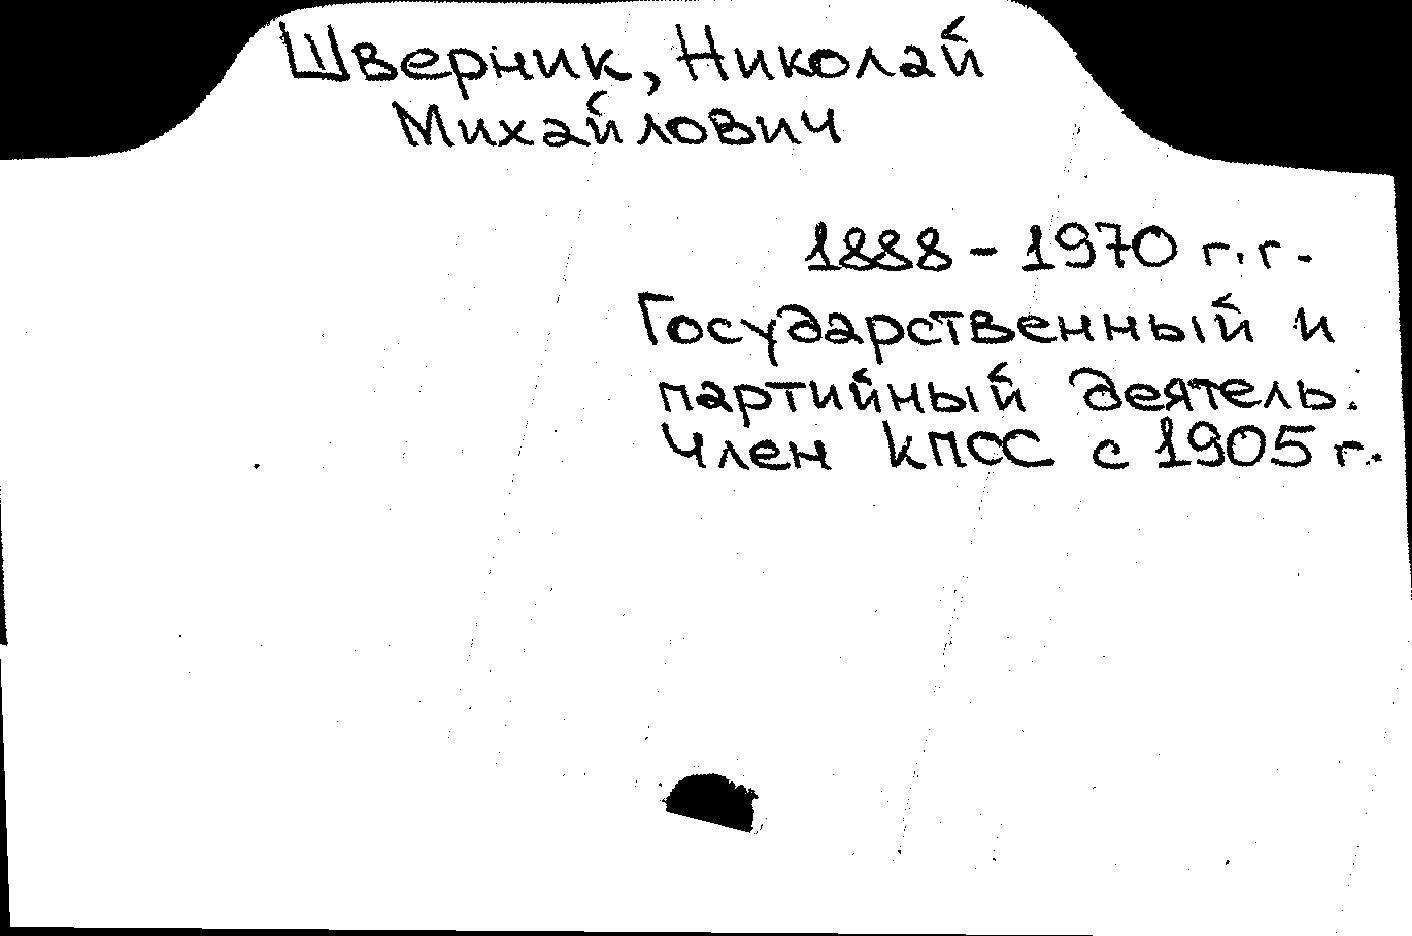 Шверник, Николай
Михайлович
1888 - 1970 г.г.
Государственный и
партийный деятель.
Член КПСС с 1905 г.